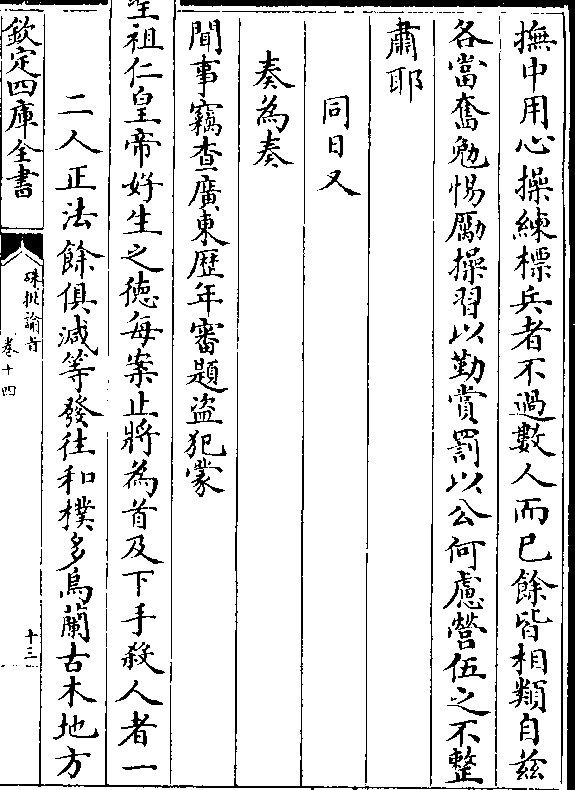 撫中用心操練標兵者不過數人而已餘皆相類自兹
各當奮勉惕厲操習以勤賞罰以公何慮營伍之不整
肅耶
同日又
奏為奏
聞事竊查廣東歷年審題盜犯蒙
聖祖仁皇帝好生之德每案止將為首及下手殺人者一
二人正法餘俱減等發往和樸多烏蘭古木地方
欽定四庫全書
硃批諭旨
卷十四
十三